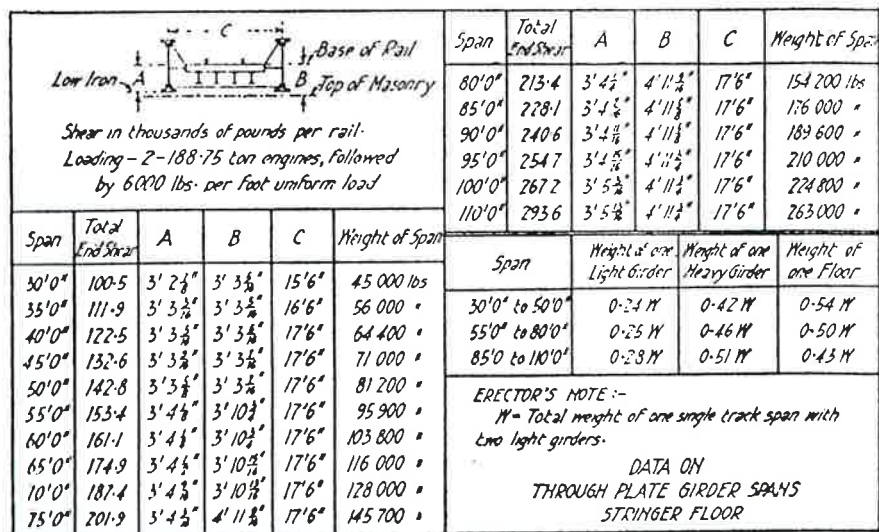 C
Base of Rail
Low Iron A B Top of Masonry
Shear in thousands of pounds per rail.
Loading - 2-188.75 ton engines, followed
by 6000 lbs. per foot uniform load
Span Total End Shear A B C Weight of Span
30'0" 100.5 3' 3' 15'6" 45 000 lbs
35'0" 111.9 3' 3' 16'6" 56 000 "
40'0" 122.5 3' 3' 17'6" 64 400 "
45'0" 132.6 3' 3' 17'6" 71 000 "
50'0" 142.8 3' 3' 17'6" 81 200 "
55'0" 153.4 3' 3' 17'6" 95 900 "
60'0" 161.1 3' 3' 17'6" 103 800 "
65'0" 174.9 3' 3' 17'6" 116 000 "
70'0" 187.4 3' 3' 17'6" 128 000 "
75'0" 201.9 3' 4' 17'6" 145 700 "
Span Total End Shear A B C Weight of Span
80'0" 213.4 3' 4' 17'6" 154 200 lbs
85'0" 228.1 3' 4' 17'6" 176 000 "
90'0" 240.6 3' 4' 17'6" 189 600 "
95'0" 254.7 3' 4' 17'6" 210 000 "
100'0" 267.2 3' 4' 17'6" 224 800 "
110'0" 293.6 3' 4' 17'6" 263 000 "
Span Weight of one Light Girder Weight of one Heavy Girder Weight of one Floor
30'0" to 50'0" 0.24 W 0.42 W 0.54 W
55'0" to 80'0" 0.25 W 0.46 W 0.50 W
85'0 to 110'0" 0.28 W 0.51 W 0.43 W
ERECTOR'S NOTE :-
W = Total weight of one single track span with
two light girders.
DATA ON
THROUGH PLATE GIRDER SPANS
STRINGER FLOOR